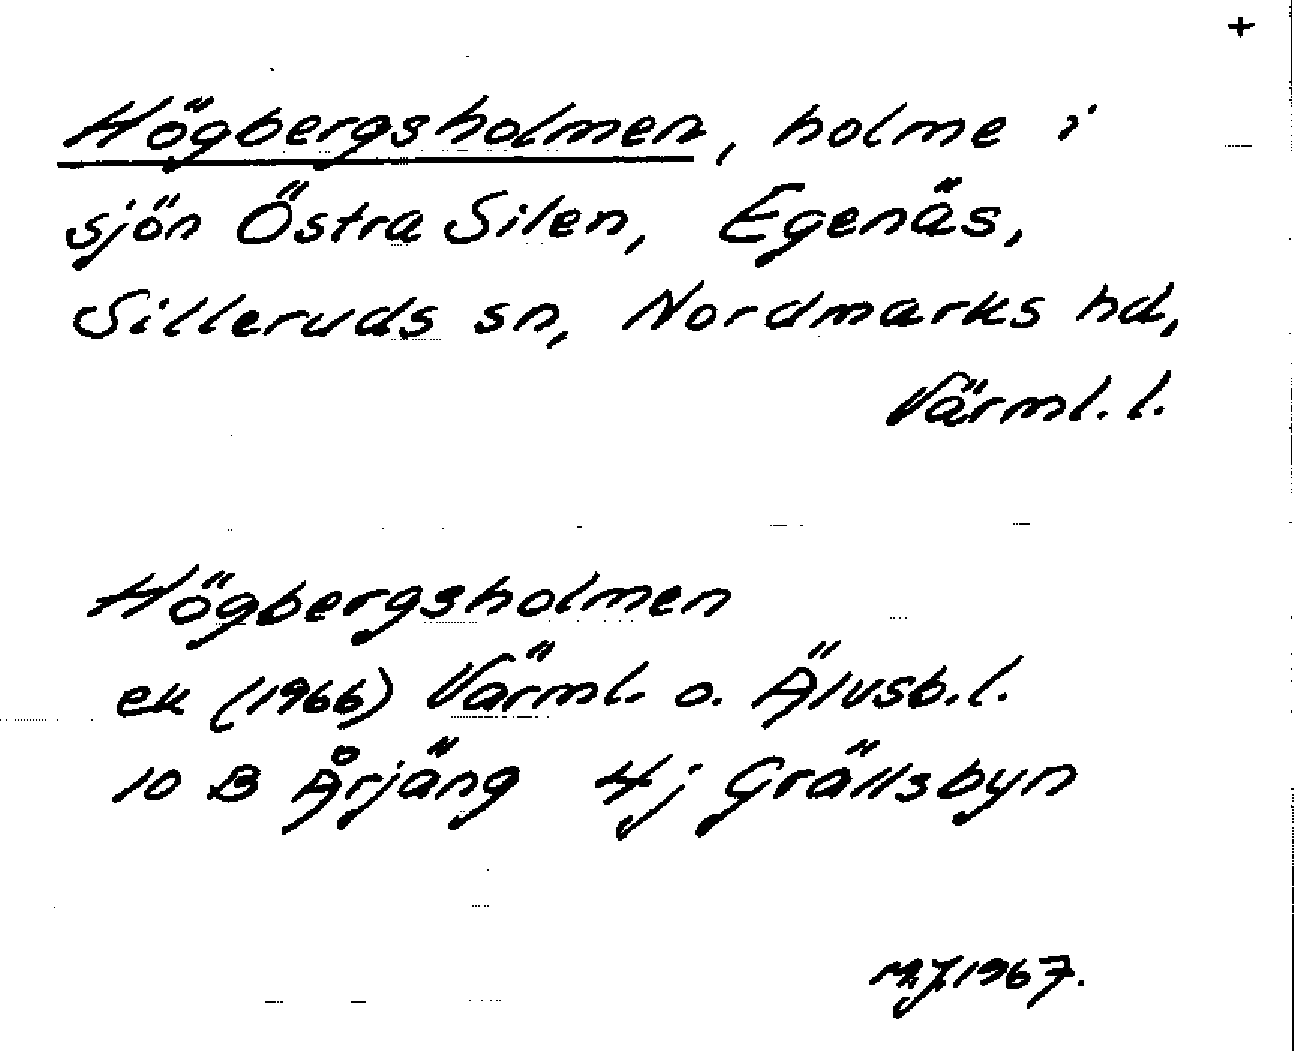 +
Högbergsholmen, holme i
sjön Östra Silen, Egenäs,
Silleruds sn, Nordmarks hd,
Värml. l.
Högbergsholmen
ek (1966) Värml. o. Älvsb. l.
10 B Årjäng 4j Grällsbyn
M.J. 1967.